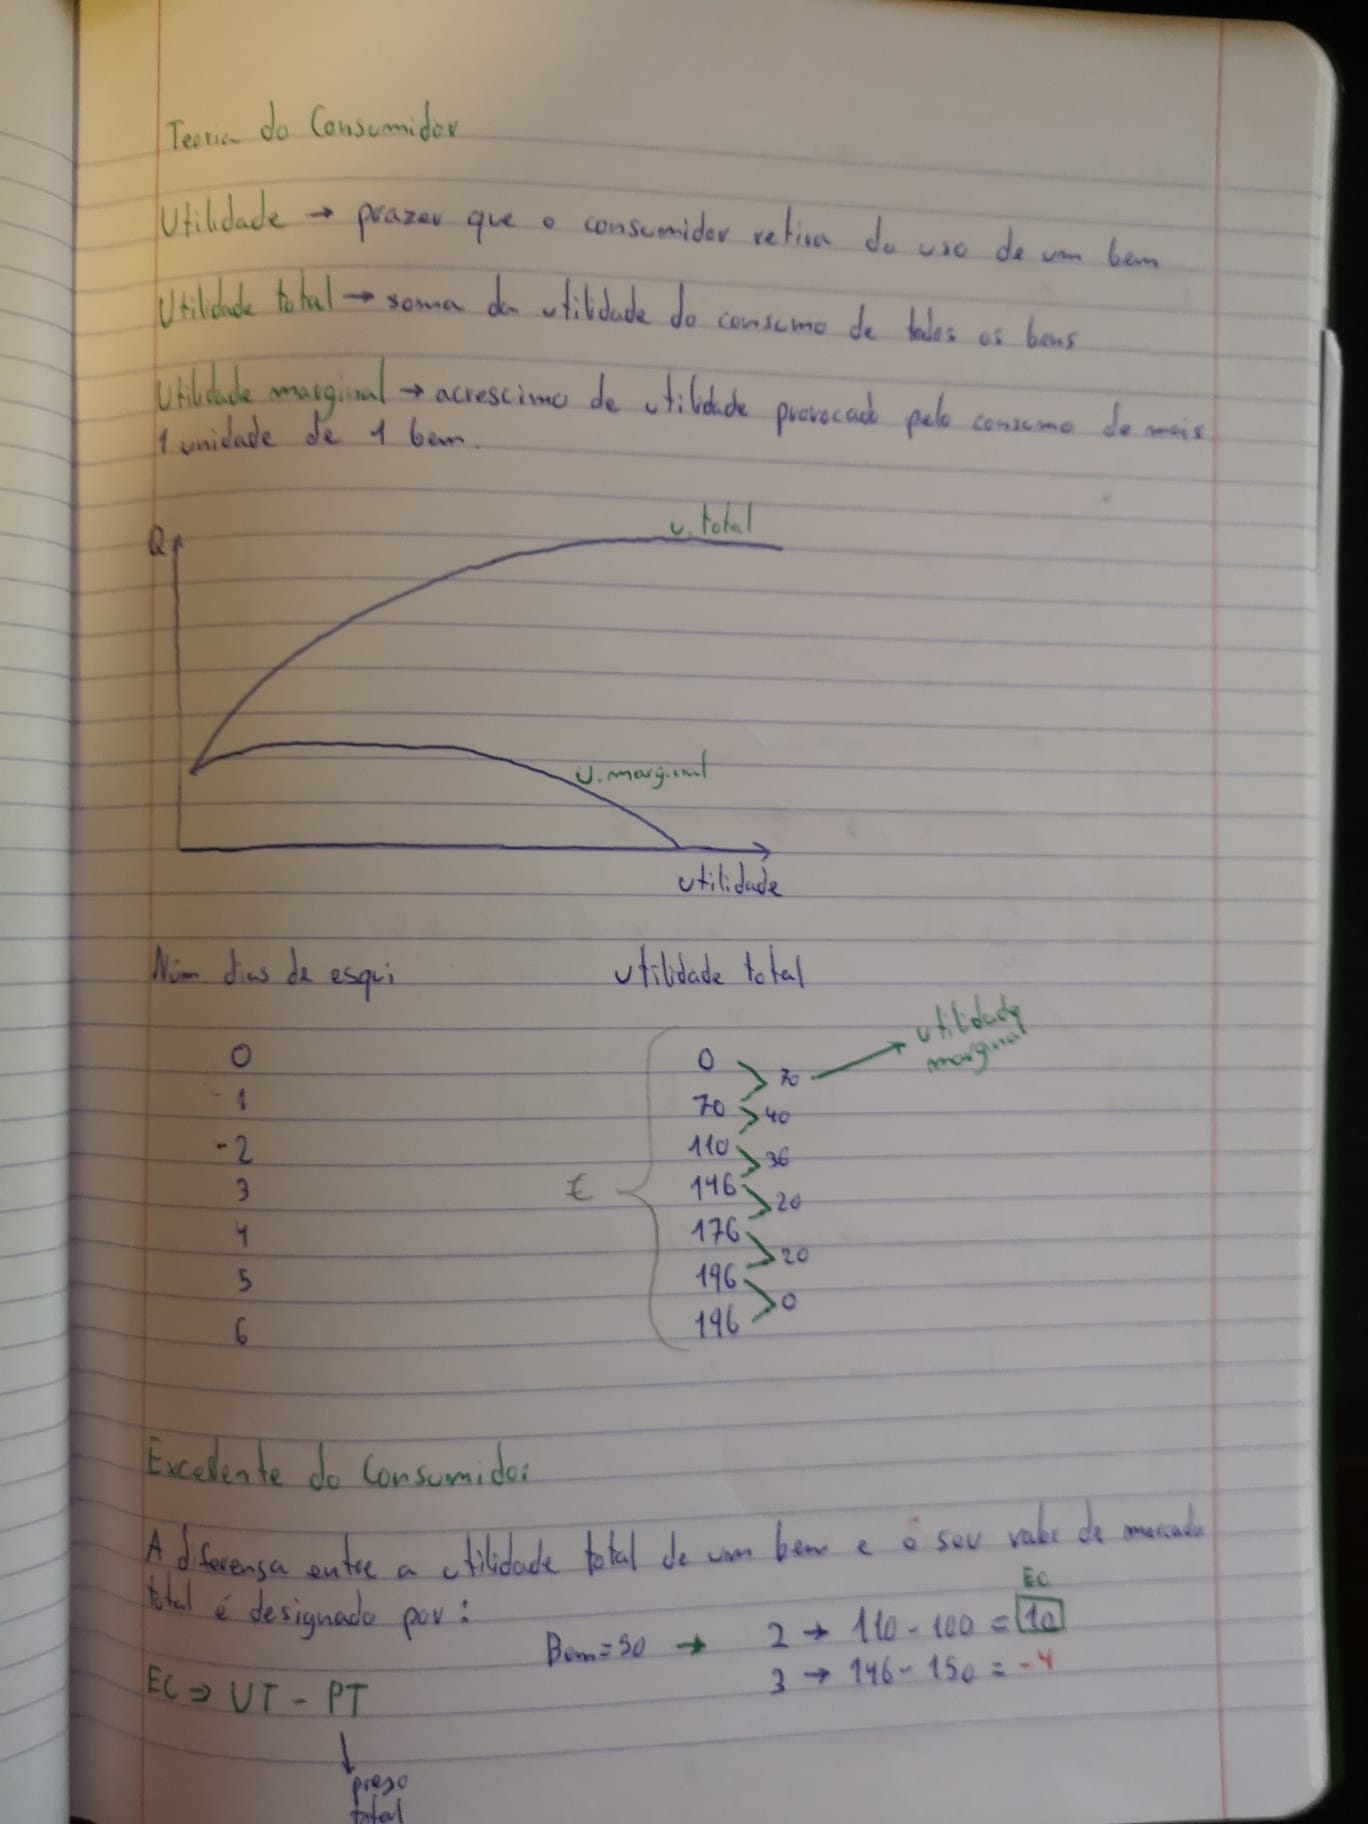 Teoria do Consumidor
Utilidade → prazer que o consumidor retira do uso de um bem
Utilidade total → soma da utilidade do consumo de todos os bens
Utilidade marginal → acrescimo de utilidade provocado pelo consumo de mais
1 unidade de 1 bem.
Q
u. total
U. marginal
utilidade
Núm. dias de esqui utilidade total
utilidade
marginal
0 0 > 70
1 70 > 40
-2 110 > 36
3 € 146 > 20
4 176 > 20
5 196 > 0
6 196
Excedente do Consumidor
A diferença entre a utilidade total de um bem e o seu valor de mercado
total é designado por:
EC
Bem = 50 → 2 → 110 - 100 = 10
3 → 146 - 150 = -4
EC ⇒ UT - PT
↓
preço
total